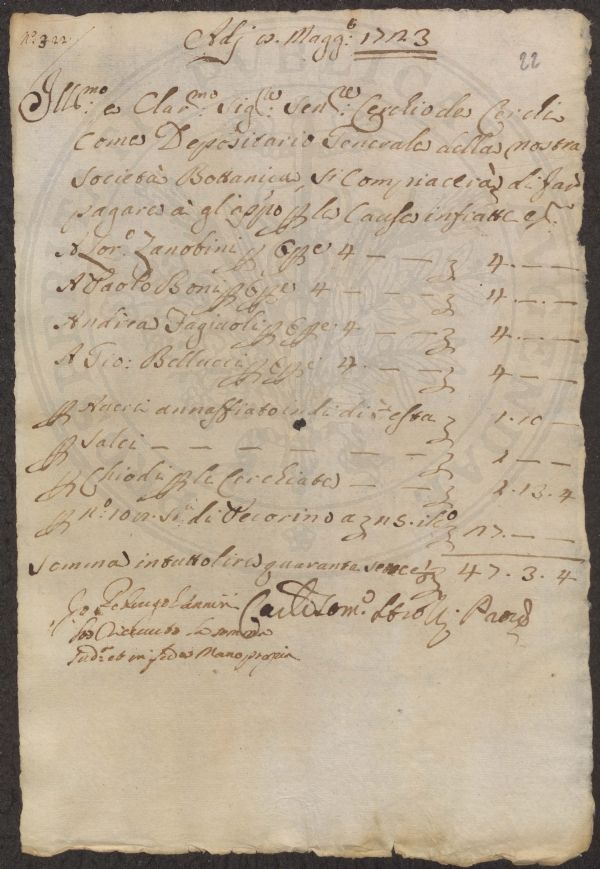 N.° 322.
Adj 2. Magg.° 1723
22
Ill.mo e Clar.mo Sig.re Sen.re Cerchio de Cerchi
Come Depositario Generale della nostra
Società Bottanica, si Compiacerà di far
pagare à gl'appo p le Cause infratte
A Lor.° Zanobini p Op.e 4 — — 4. — —
A Paolo Boni p Op.e 4 — — 4. — —
Andrea Fagiuoli p Op.e 4 — — 4. — —
A Gio: Bellucci p Op.e 4. — — 4. — —
p Avere annaffiato in di di festa 1. 10 —
p Salci — — — — — — —
p Chiodi p le Cerchiate — 2. 13. 4
p N.° di Pecorino
Somma in tutto lire quaranta sette 47. 3. 4
Io
ho Riceuto la somma
Sud.a et in fede Mano propria